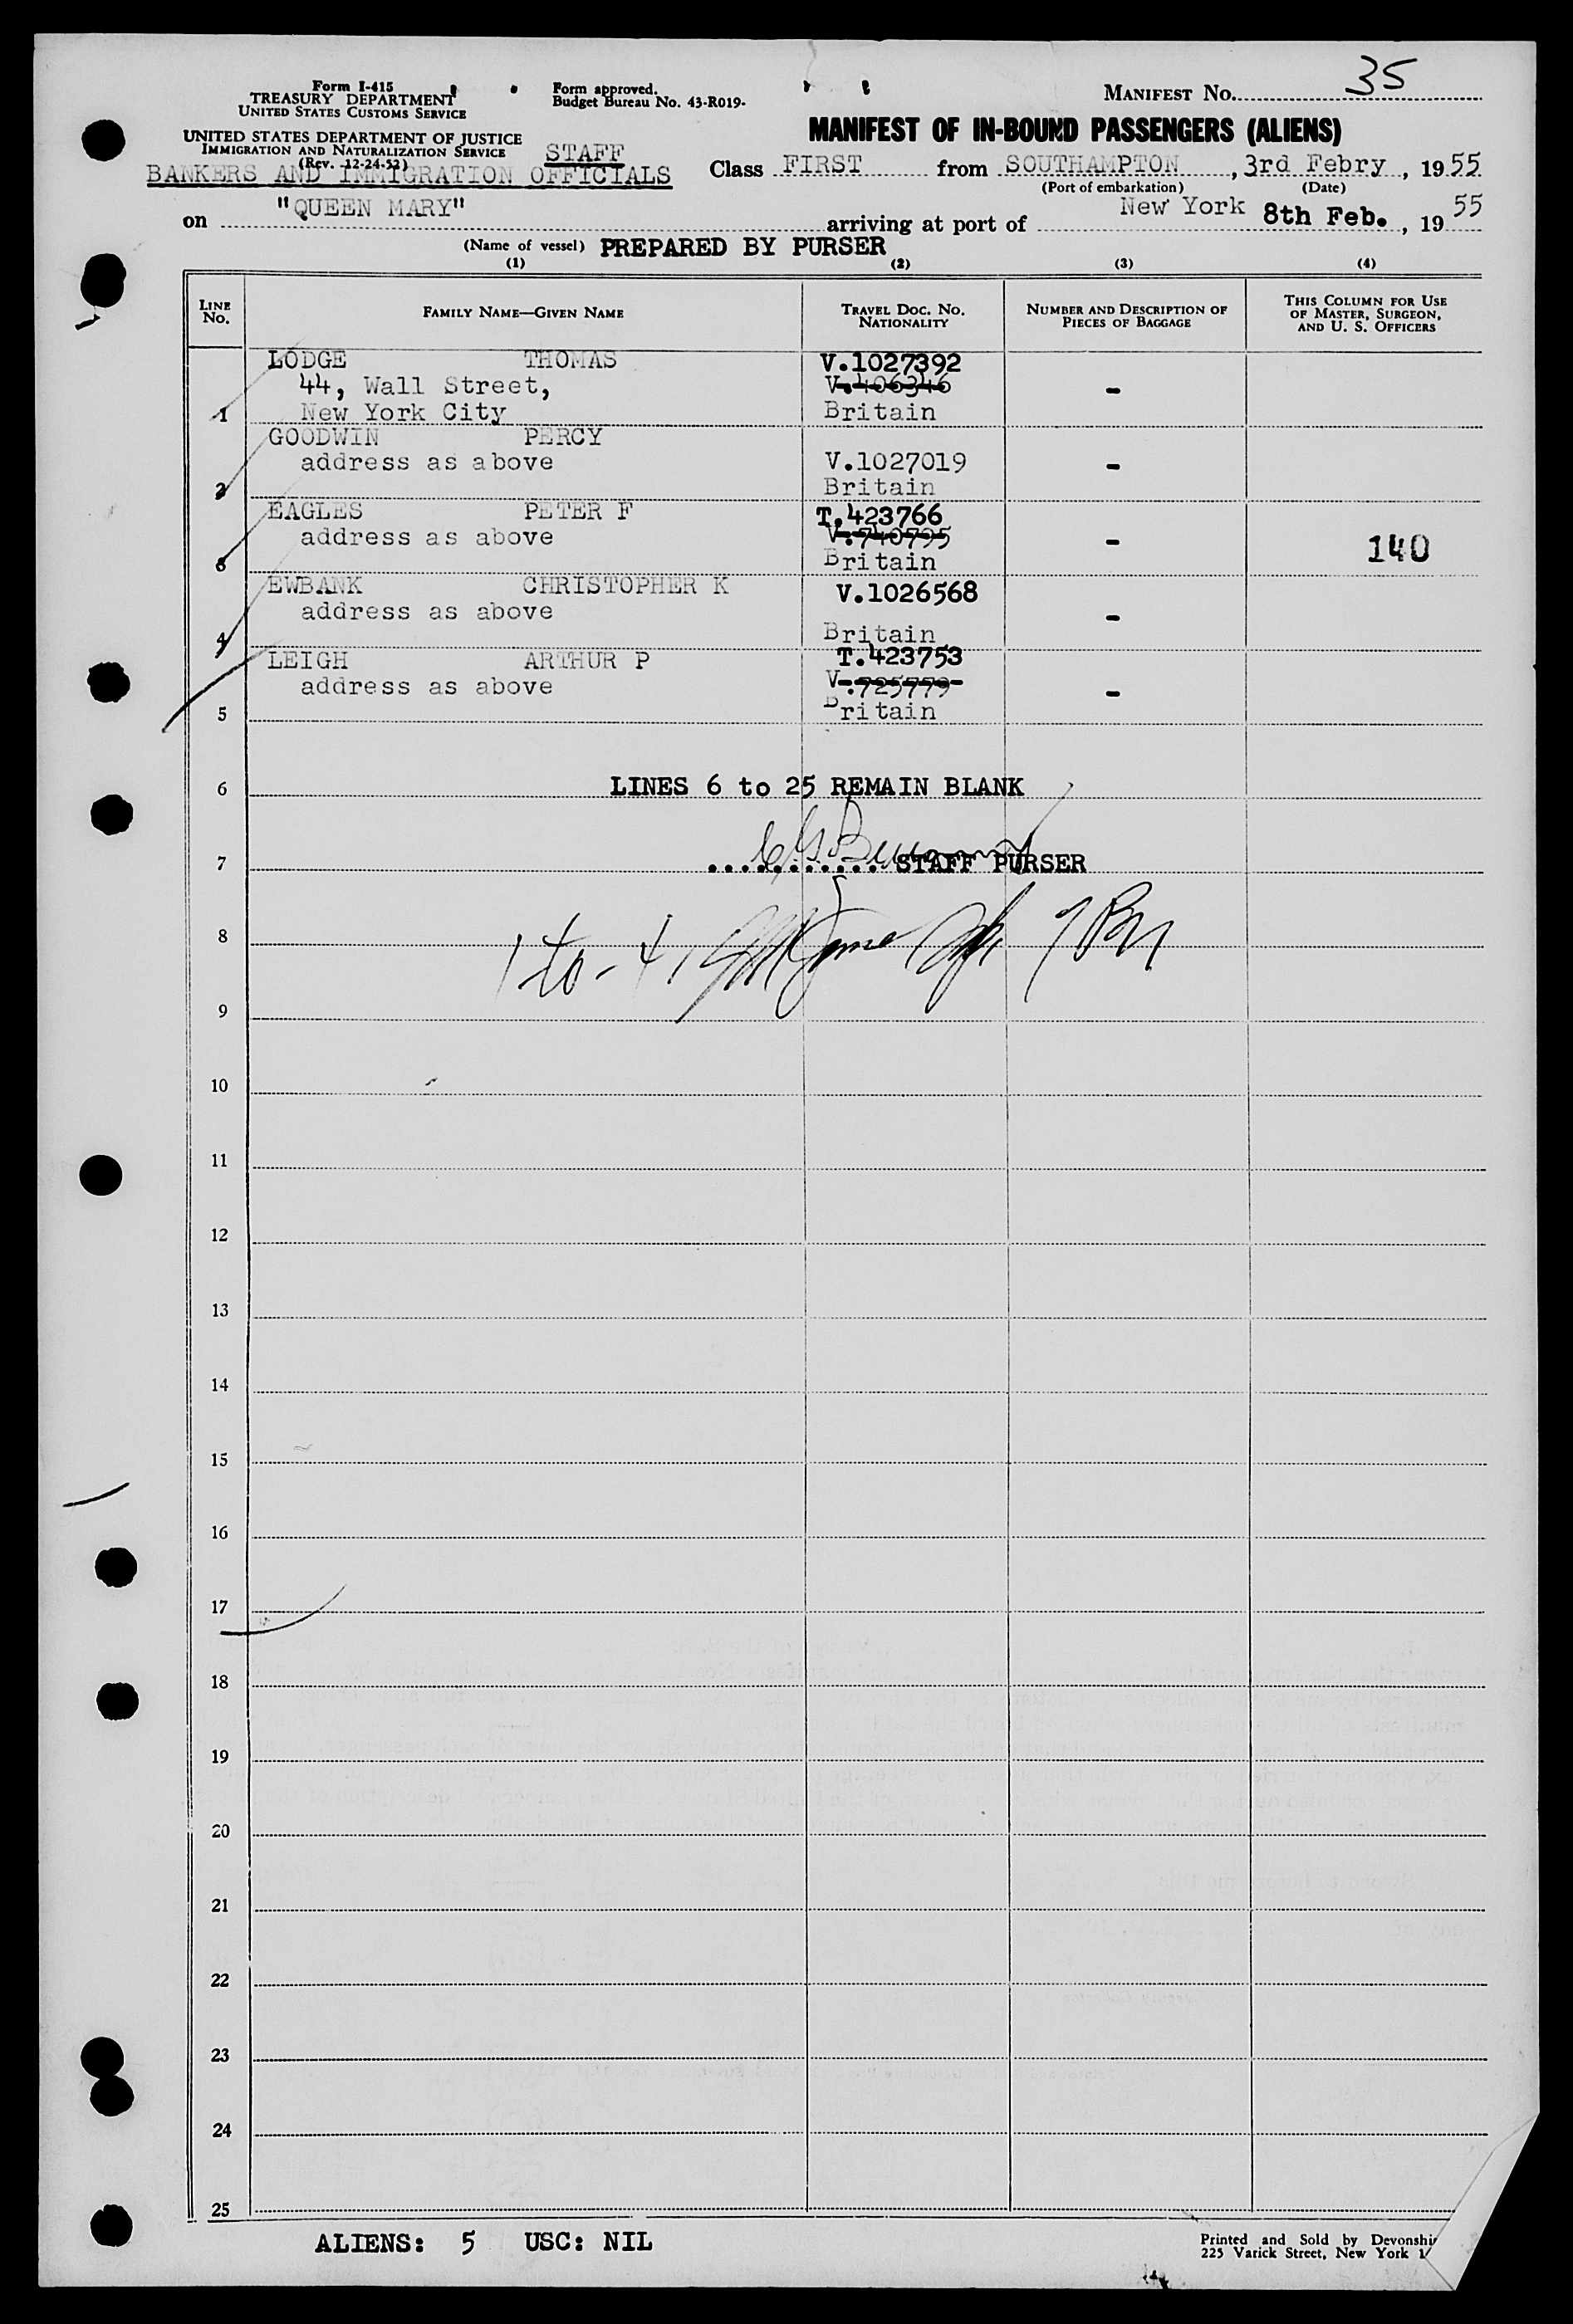 Form I-415
TREASURY DEPARTMENT
UNITED STATES CUSTOMS SERVICE
UNITED STATES DEPARTMENT OF JUSTICE
IMMIGRATION AND NATURALIZATION SERVICE
(Rev. 12-24-52)
Form approved.
Budget Bureau No. 43-R019-
MANIFEST No. 35
MANIFEST OF IN-BOUND PASSENGERS (ALIENS)
STAFF
BANKERS AND IMMIGRATION OFFICIALS
Class FIRST from SOUTHAMPTON, 3rd Febry, 1955
(Port of embarkation) (Date)
on "QUEEN MARY" arriving at port of New York 8th Feb., 1955
(Name of vessel) PREPARED BY PURSER
(1) (2) (3) (4)
LINE No. FAMILY NAME—GIVEN NAME TRAVEL DOC. No. NATIONALITY NUMBER AND DESCRIPTION OF PIECES OF BAGGAGE THIS COLUMN FOR USE OF MASTER, SURGEON, AND U. S. OFFICERS
LODGE THOMAS V.1027392
44, Wall Street, V.406346 -
1 New York City Britain
GOODWIN PERCY
address as above V.1027019 -
2 Britain
EAGLES PETER F T.423766
address as above V.740795 - 140
3 Britain
EWBANK CHRISTOPHER K V.1026568
address as above -
4 Britain
LEIGH ARTHUR P T.423753
address as above V.725779 -
5 Britain
6 LINES 6 to 25 REMAIN BLANK
7 ........... STAFF PURSER
8 1 to - 4
9
10
11
12
13
14
15
16
17
18
19
20
21
22
23
24
25
ALIENS: 5 USC: NIL
Printed and Sold by Devonshir
225 Varick Street, New York 1